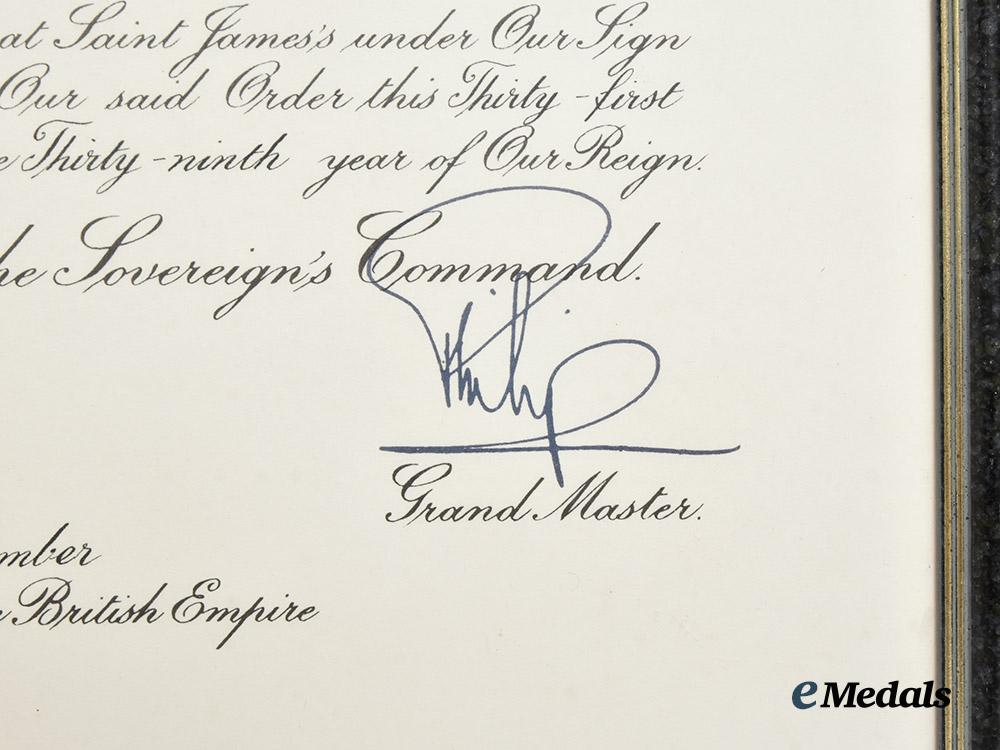 at Saint James's under Our Sign
Our said Order this Thirty-first
Thirty-ninth year of Our Reign.
he Sovereign's Command.
Philip
Grand Master.
mber
British Empire
eMedals